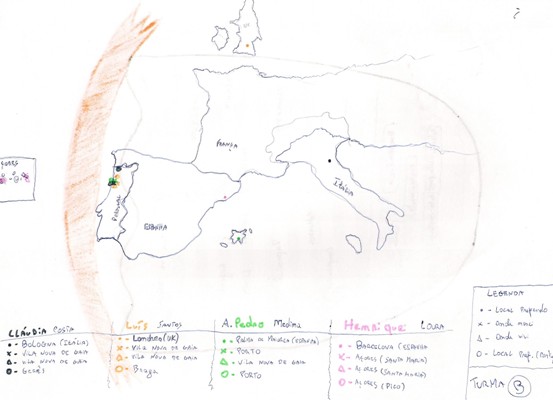 ?
UK
FRANÇA
ITÁLIA
PORTUGAL
ESPANHA
AÇORES
CLÁUDIA COSTA
• - BOLOGNA (ITÁLIA)
x - VILA NOVA DE GAIA
△ - VILA NOVA DE GAIA
O - GERÊS
LUÍS SANTOS
• - LONDRES (UK)
x - VILA NOVA DE GAIA
△ - VILA NOVA DE GAIA
O - BRAGA
A. PEDRO MEDINA
• - PALMA DE MAIORCA (ESPANHA)
x - PORTO
△ - VILA NOVA DE GAIA
O - PORTO
HENRIQUE
• - BARCELONA (ESPANHA
x - AÇORES (SANTA MARIA)
△ - AÇORES (SANTA MARIA)
O - AÇORES (PICO)
LEGENDA
• - LOCAL
x - ONDE
△ - ONDE
O - LOCAL PREF.
TURMA B